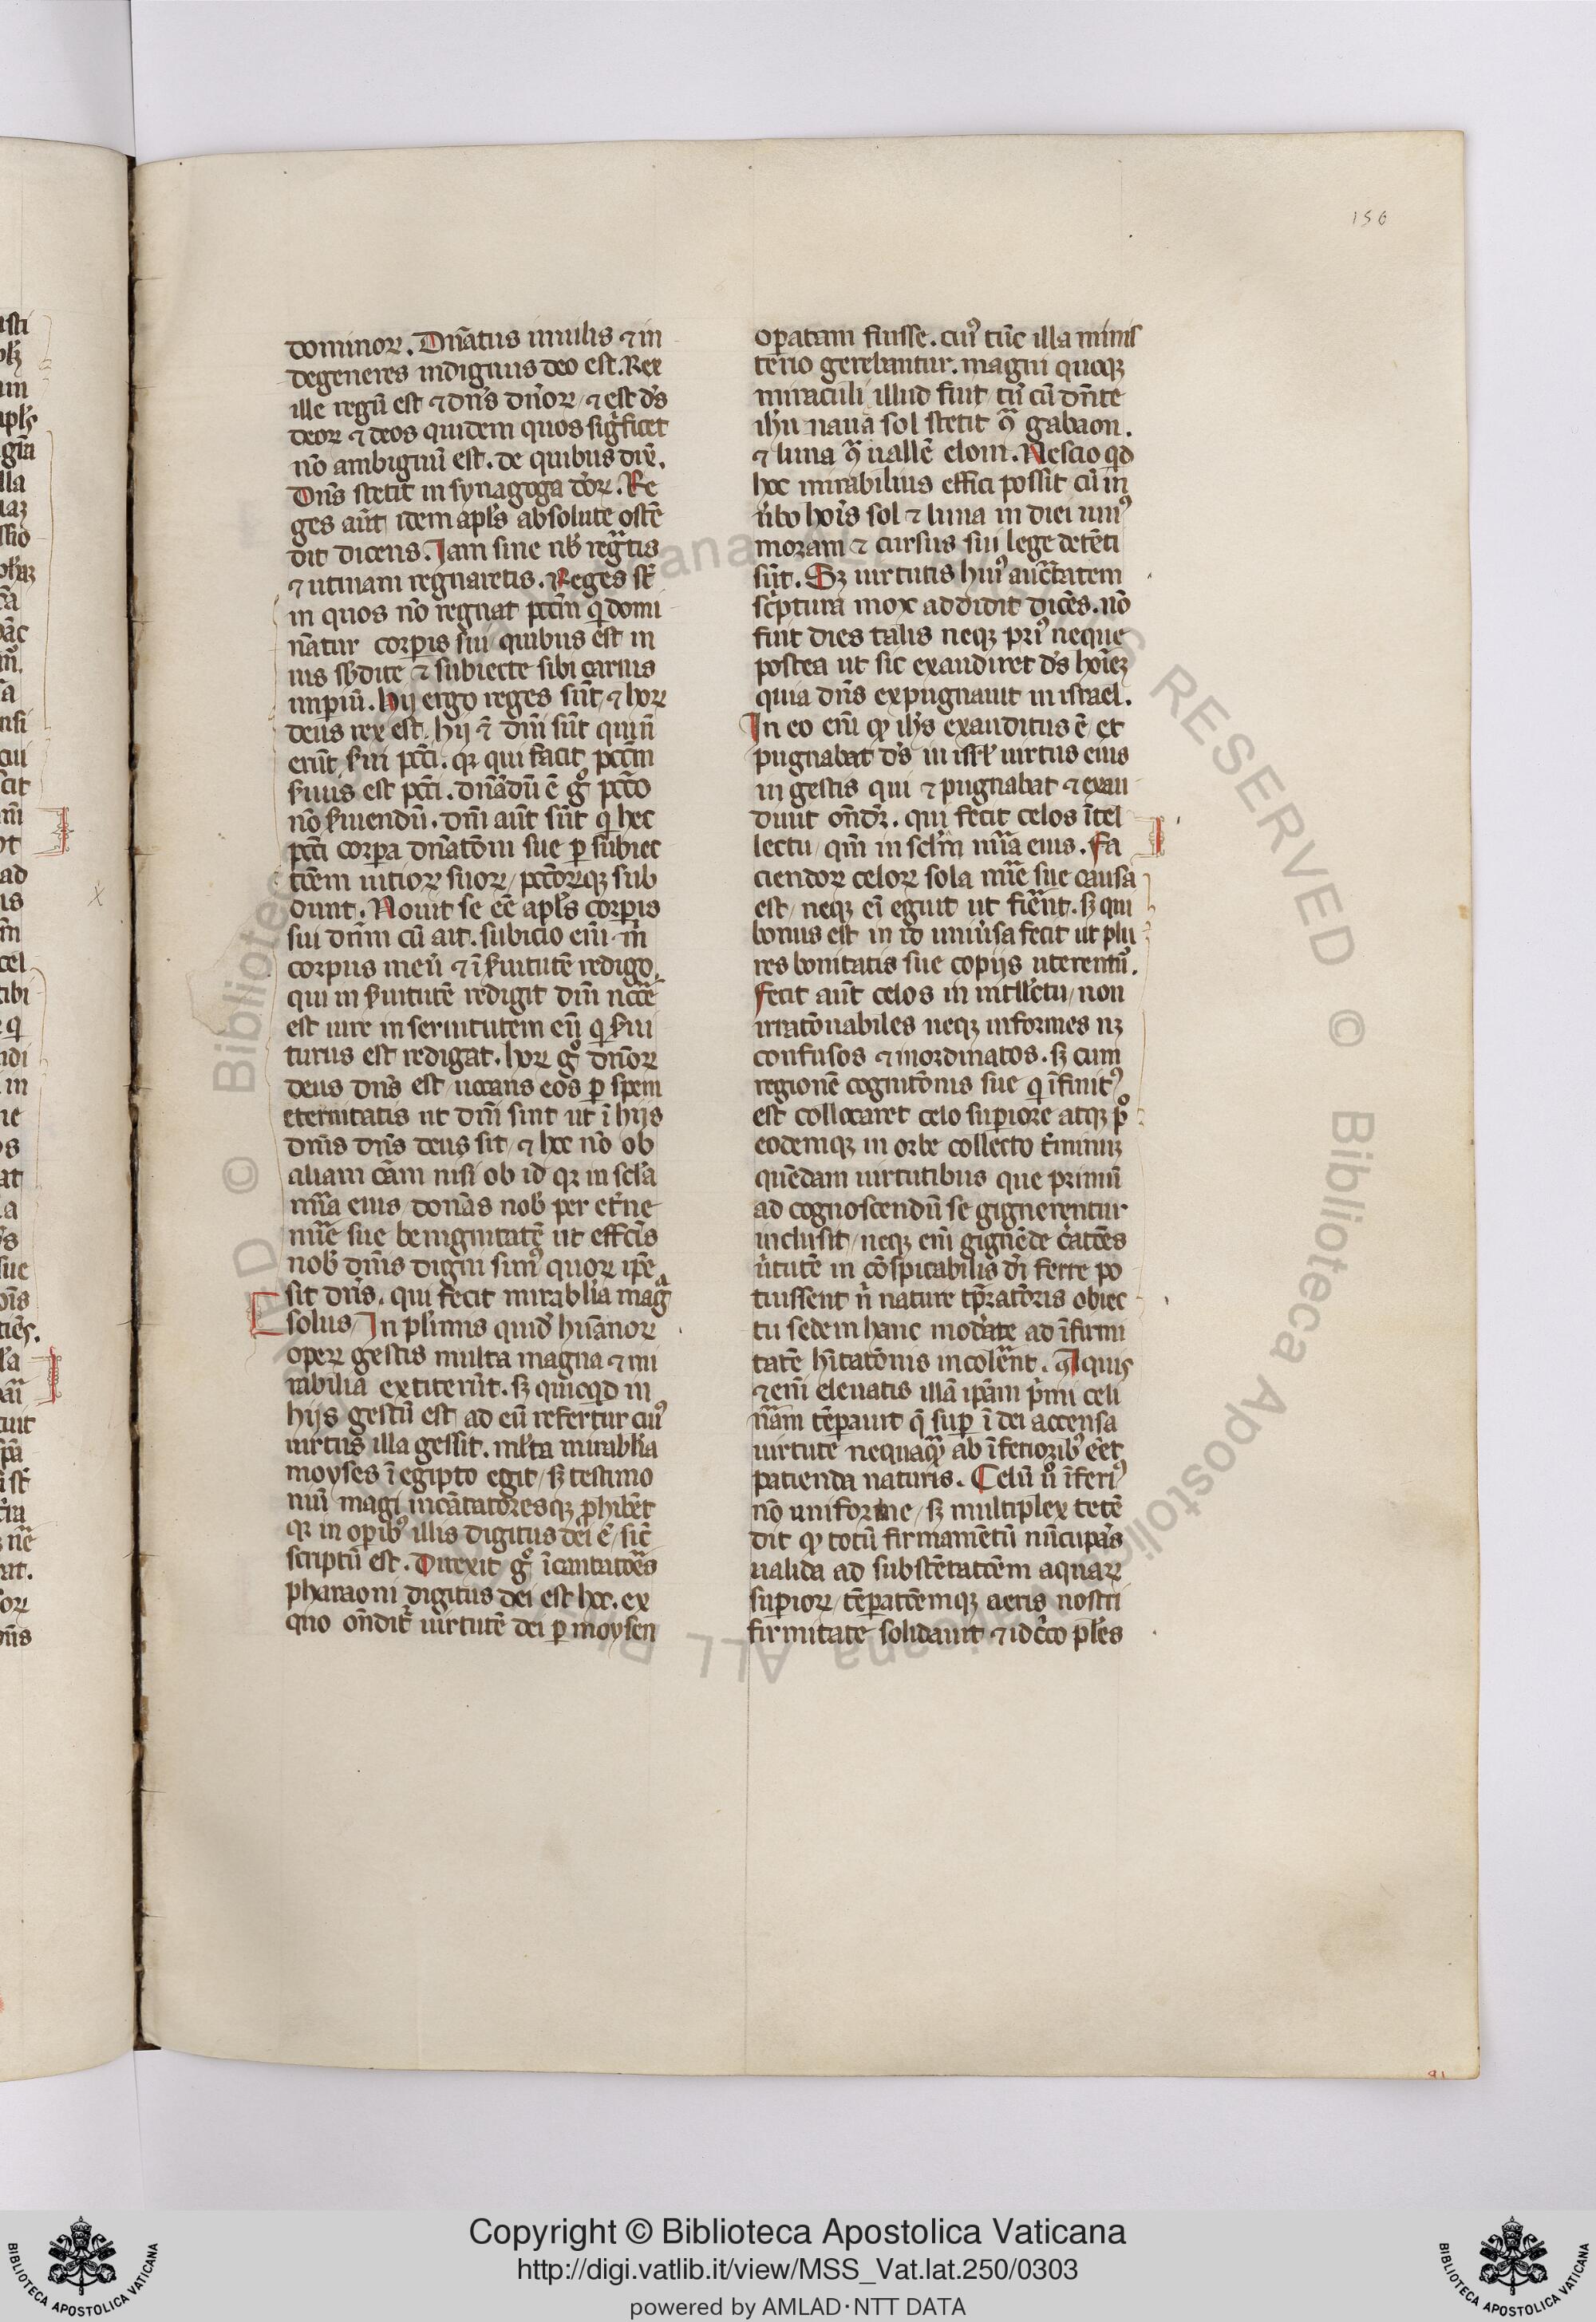 156
dominoꝝ. Dn̄atus inutilis ⁊ in
degeneres indignus deo est. Rex
ille regū est ⁊ dn̄s dn̄oꝝ / ⁊ est ds̄
deoꝝ ⁊ deos quidem quos sigficet
nō ambiguū est. de quibus
Dn̄s stetit in synagoga deoꝝ. Re
ges aūt idem apl̄s absolute ostē
dit dicens. Iam sine nob̄ regnatis
⁊ utinam regnaretis. Reges st̄
in quos nō regnat pcc̄m q̄ domi
nātur corpis sui quibus est in
iīs sb̄dite ⁊ subiecte sibi carnis
impiū. Hij ergo reges sūt ⁊ hoꝝ
deus rex est. hij ⁊ dn̄i sūt qui n̄
erūt s̄ui pcc̄i. qꝛ qui facit pcc̄m
s̄uus est pcc̄i. dn̄adū ē gͦ pcc̄o
nō s̄uiendū. dn̄i aūt sūt q̄ hec
pcc̄i corpa dn̄atōni sue ꝑ subiec
tōem uitioꝝ suoꝝ / pcc̄oꝝqꝫ sub
dunt. Nouit se eē apl̄s corpis
sui dn̄m cū ait. subicio eīm m̄
corpus meū ⁊ ī s̄uitutē redigo.
qui in s̄uitutē redigit dn̄i nc̄cē
est iure in seruitutem eū q̄ s̄ui
turus est redigat. hoꝝ gͦ dn̄oꝝ
deus dn̄s est / uocans eos ꝑ spem
eternitatis ut dn̄i sint ut ī hijs
dn̄is dn̄s deus sit / ⁊ hoc nō ob
aliam cām nisi ob id qꝛ in sc̄la
mīa eius / donās nob̄ per et̄ne
mīe sue benignitatē ut effc̄is
nob̄ dn̄is digni simꝰ quoꝝ ipē
sit dn̄s. qui fecit mirabl̄ia magᵃ
solus / In pl̄imis quid̄ hūanoꝝ
opeꝝ gestis multa magna ⁊ mi
rabilia extiterūt. sꝫ quicqd in
hijs gestū est ad eū refertur cuiꝰ
uirtus illa gessit. ml̄ta mirabl̄ia
moyses ī egipto egit / sꝫ testimo
niū magi incātatoresqꝫ phibēt
qꝛ in opibꝰ illis digitus dei ē / sic̄
scriptū est. Dixerūt gͦ īcantatōēs
pharaoni digitus dei est hoc. ex
quo on̄dit̄ uirtutē dei ꝑ moysen
opatam fuisse. cuiꝰ tūc illa minis
terio gerebantur. magni quoqꝫ
miraculi illud fuit / cū cū dn̄te
ih̄u naua sol stetit ꝗᵃ gabaon.
⁊ luna ꝗᵃ uallē elom. Nescio qd
hoc mirabilius effici possit cū in
ūbo hoīs sol ⁊ luna in diei uniꝰ
moram ⁊ cursus sui lege detēti
sūt. Sꝫ uirtutis huiꝰ auctᵃtatem
sc̄ptura mox addidit dicēs. nō
fuit dies talis neqꝫ priꝰ neque
postea ut sic exaudiret ds̄ hoīeꝫ
quia dn̄s expugnauit in israel.
In eo eīm ꝙ ih̄s exauditus ē / et
pugnabat ds̄ in isrl̄ uirtus eius
in gestis qui ⁊ pugnabat ⁊ exau
diuit . qui fecit celos ītel
lectu / qm̄ in scl̄m mīa eius. Fa
ciendoꝝ celoꝝ sola mīe sue causa
est / neqꝫ eī eguit ut fierēnt. sꝫ qui
bonus est in id uniūsa fecit ut plu
res bonitatis sue copijs uterentᷣ.
Fecit aūt celos in intll̄ectu / non
irratōnabiles neqꝫ informes nꝫ
confusos ⁊ inordinatos. sꝫ cum
regionē cognitōnis sue q̄ īfinitꝰ
est collocaret celo supiore atqꝫ pͦ
eodemqꝫ in orbe collecto t̄minuꝫ
quēdam uirtutibus que primū
ad cognoscendū se gignerentur
inclusit / neqꝫ eīm gignēde c̄atōēs
ūtutē in cōspicabilis dī ferre po
tuissent n̄ nature tp̄ratōris obiec
tu sedem hanc modate ad īfirmi
tatē hītatōnis incolerent. Aquis
⁊ eīm eleuatis illā ipām p̄mi celi
nām tēpauit q̄ sup ī dei accensa
uirtute nequaꝙᵃ ab īferioribꝰ eēt
patienda naturis. Celū uͦ īferiꝰ
nō uniforme / sꝫ multiplex tetē
dit ꝙ totū firmamētū nūcupās
ualida ad substētatōēm aquaꝝ
supioꝝ / tēpatōēmqꝫ aeris nostri
firmitate solidauit ⁊ idc̄co pl̄es
Copyright © Biblioteca Apostolica Vaticana
http://digi.vatlib.it/view/MSS_Vat.lat.250/0303
powered by AMLAD·NTT DATA
BIBLIOTECA APOSTOLICA VATICANA
BIBLIOTECA APOSTOLICA VATICANA